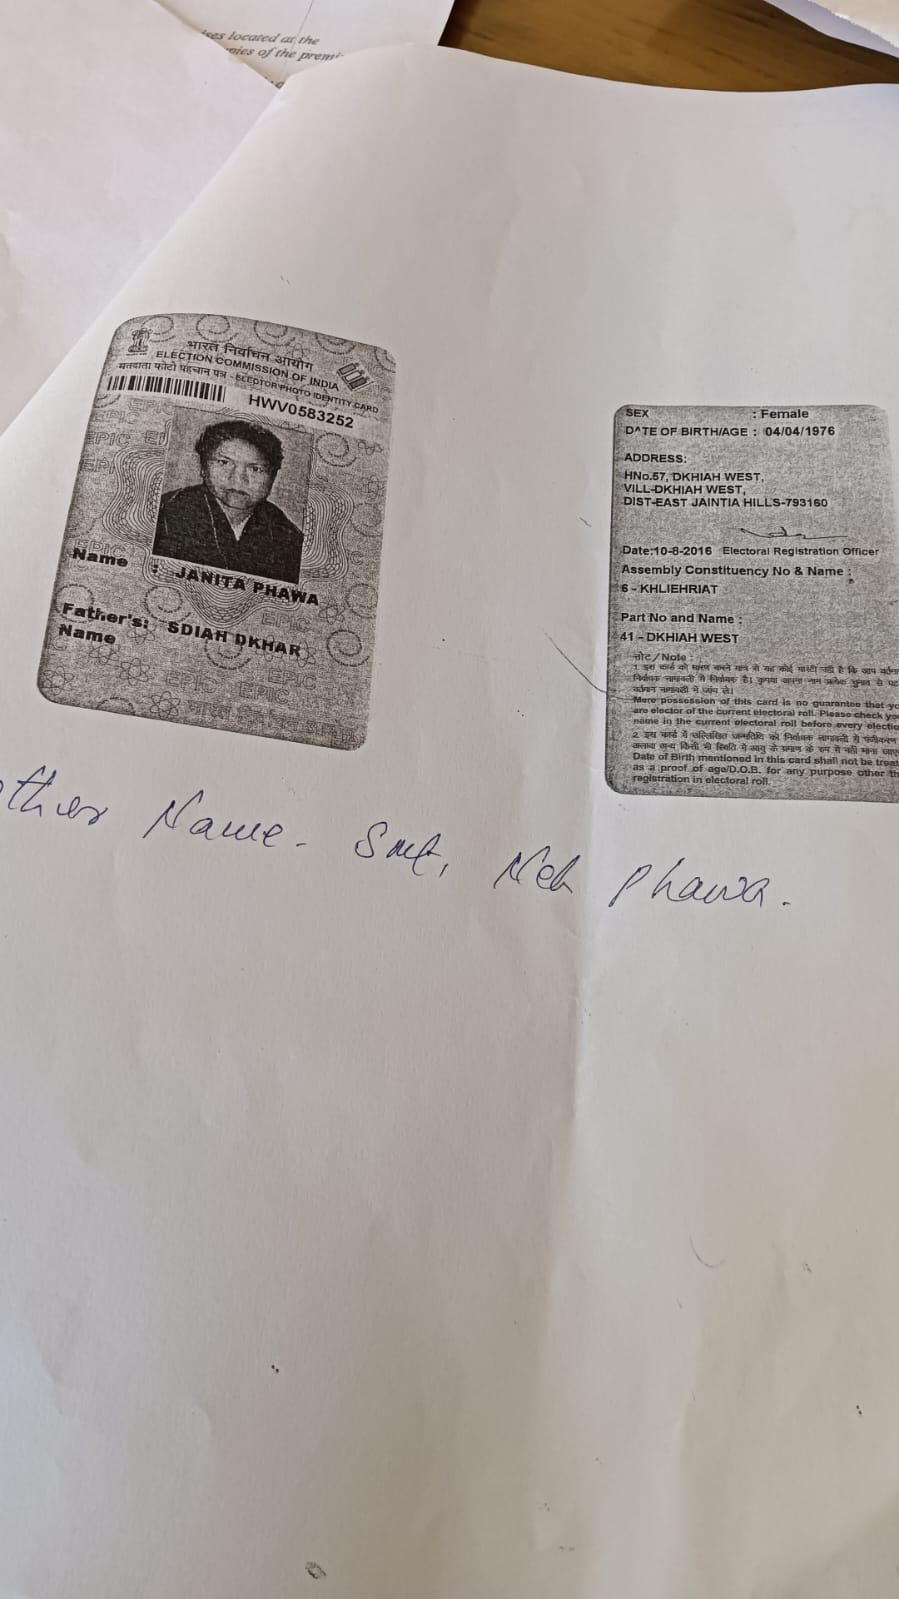 ises located at the
pies of the premi
भारत निर्वाचन आयोग
ELECTION COMMISSION OF INDIA
मतदाता फोटो पहचान पत्र - ELECTOR PHOTO IDENTITY CARD
HWV0583252
Name : JANITA PHAWA
Father's: SDIAH DKHAR
Name
SEX : Female
DATE OF BIRTH/AGE : 04/04/1976
ADDRESS:
HNo.57, DKHIAH WEST,
VILL-DKHIAH WEST,
DIST-EAST JAINTIA HILLS-793160
Date:10-8-2016 Electoral Registration Officer
Assembly Constituency No & Name :
6 - KHLIEHRIAT
Part No and Name :
41 - DKHIAH WEST
नोट / Note :
1. इस कार्ड को धारण करने मात्र से यह कोई गारंटी नहीं है कि आप वर्तमान
निर्वाचक नामावली में निर्वाचक हैं। कृपया अपना नाम प्रत्येक चुनाव से पह
वर्तमान नामावली में जांच लें।
Mere possession of this card is no guarantee that yo
are elector of the current electoral roll. Please check you
name in the current electoral roll before every electio
2. इस कार्ड में उल्लिखित जन्मतिथि को निर्वाचक नामावली में पंजीकरण
अलावा अन्य किसी भी स्थिति में आयु के प्रमाण के रूप में नहीं माना जाए
Date of Birth mentioned in this card shall not be treat
as a proof of age/D.O.B. for any purpose other th
registration in electoral roll.
other Name. Smt, Neh Phawa.